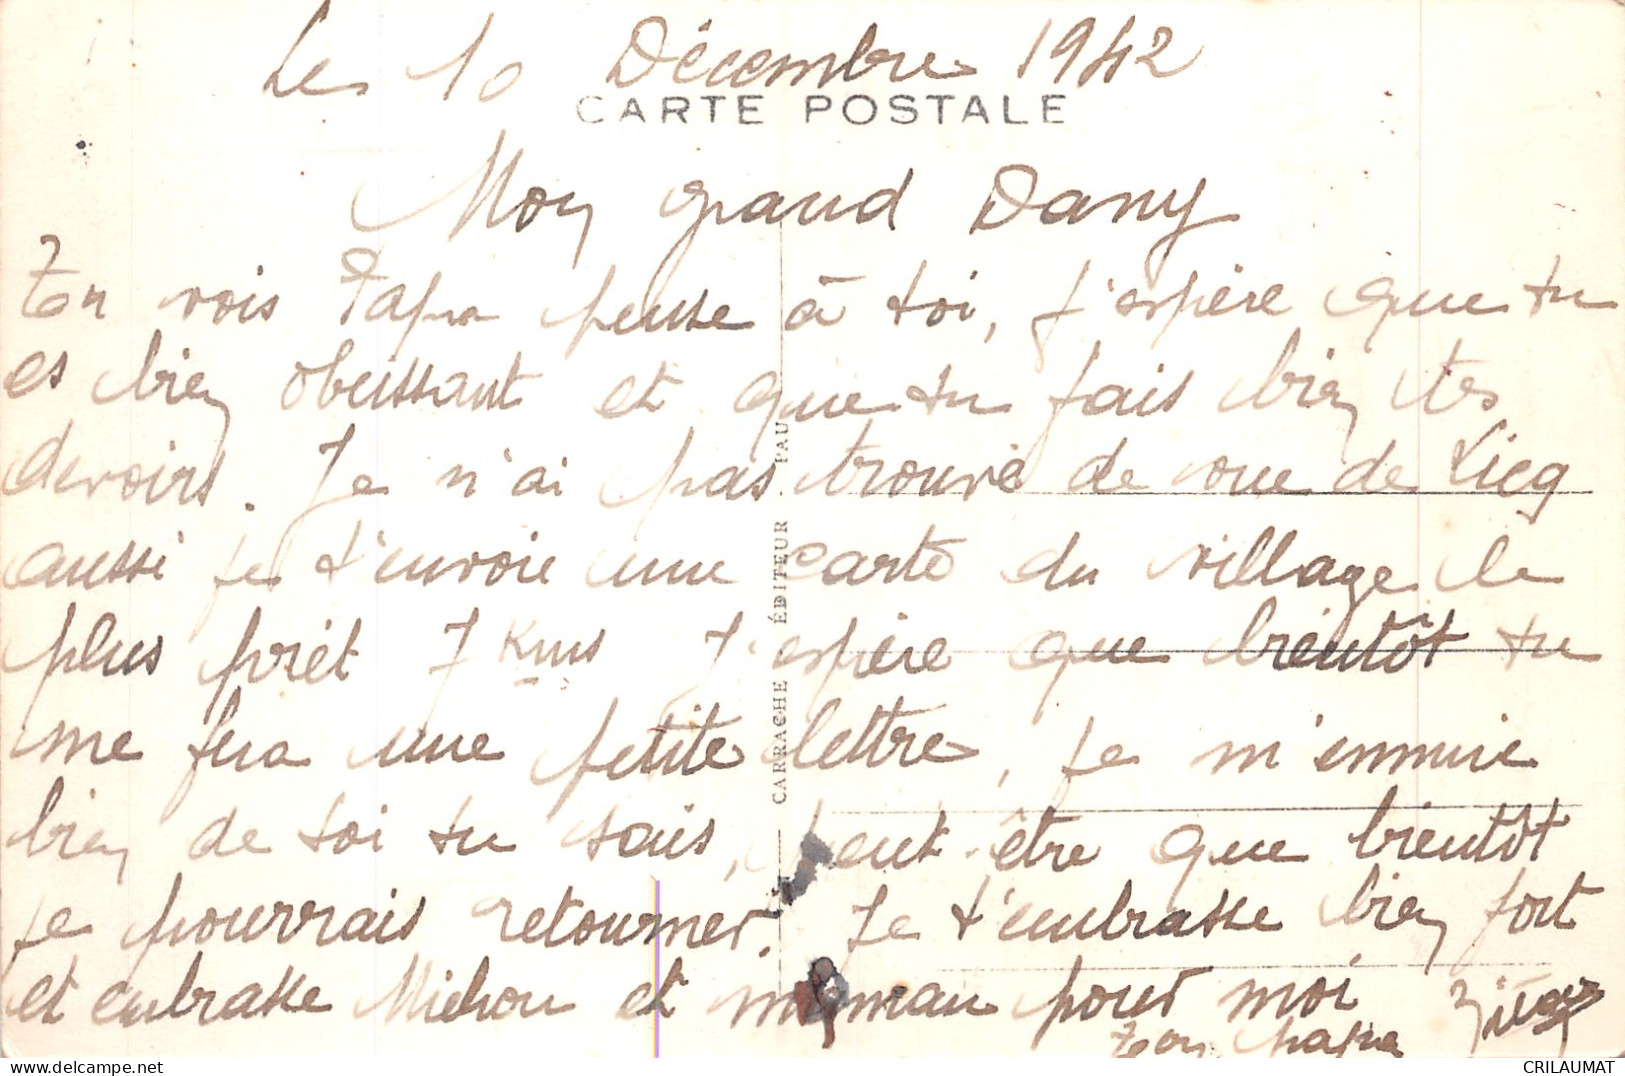 Le 10 Décembre 1942
CARTE POSTALE
Mon grand Dany
Tu vois Papa pense à toi, j'espère que tu
es bien obeissant et que tu fais bien tes
devoirs. Je n'ai pas trouvé de vue de Licq
aussi je t'envoie une carte du village le
plus prêt 7 Kms J'espère que bientôt tu
me fera une petite lettre, je m'ennuie
bien de toi tu sais, peut-être que bientôt
je pourrais retourner. Je t'embrasse bien fort
et embrasse Michou et maman pour moi
Ton papa
CARRACHE ÉDITEUR PAU
CRILAUMAT